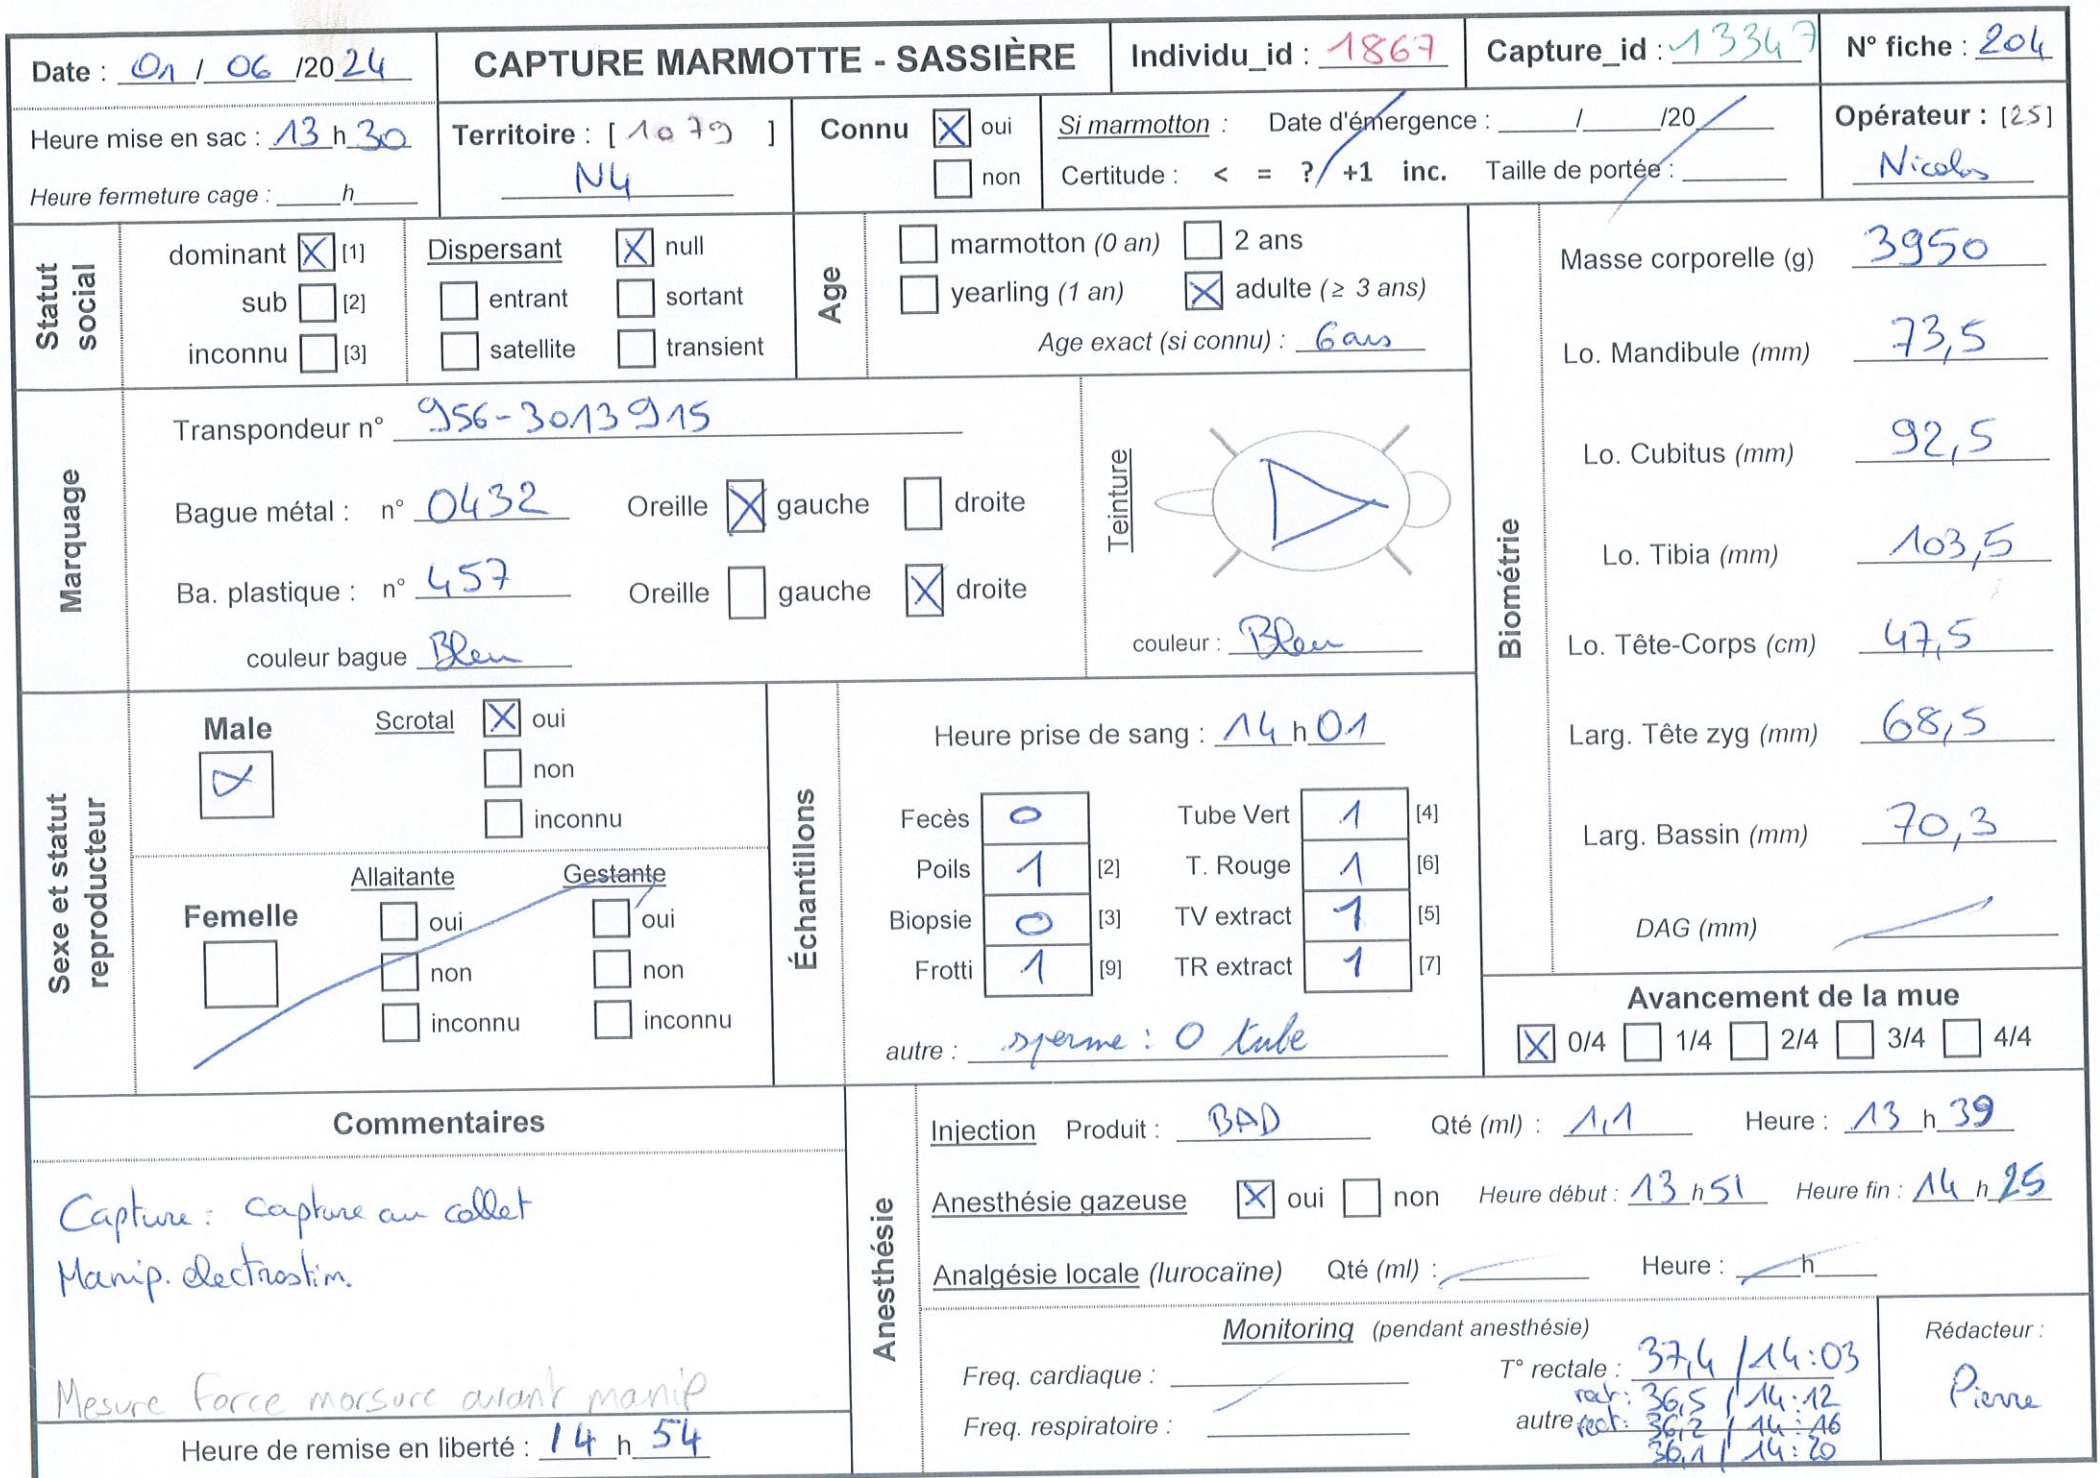 Date : 01 / 06 /20 24
CAPTURE MARMOTTE - SASSIÈRE
Individu_id : 1867
Capture_id : 13347
N° fiche : 204
Heure mise en sac : 13 h 30
Heure fermeture cage : ____h____
Territoire : [ 1079 ]
N4
Connu
oui
non
Si marmotton : Date d'émergence : ____/____/20____
Certitude : < = ? / +1 inc. Taille de portée : ____
Opérateur : [25]
Nicolas
Statut social
dominant [1]
sub [2]
inconnu [3]
Dispersant
null
entrant
sortant
satellite
transient
Age
marmotton (0 an)
2 ans
yearling (1 an)
adulte (≥ 3 ans)
Age exact (si connu) : 6 ans
Marquage
Transpondeur n° 956-3013915
Bague métal : n° 0432 Oreille gauche droite
Ba. plastique : n° 457 Oreille gauche droite
couleur bague Bleu
Teinture
couleur : Bleu
Biométrie
Masse corporelle (g) 3950
Lo. Mandibule (mm) 73,5
Lo. Cubitus (mm) 92,5
Lo. Tibia (mm) 103,5
Lo. Tête-Corps (cm) 47,5
Larg. Tête zyg (mm) 68,5
Larg. Bassin (mm) 70,3
DAG (mm)
Sexe et statut reproducteur
Male
Scrotal
oui
non
inconnu
Femelle
Allaitante
oui
non
inconnu
Gestante
oui
non
inconnu
Échantillons
Heure prise de sang : 14 h 01
Fecès 0
Tube Vert 1 [4]
Poils 1 [2]
T. Rouge 1 [6]
Biopsie 0 [3]
TV extract 1 [5]
Frotti 1 [9]
TR extract 1 [7]
autre : sperme : 0 tube
Avancement de la mue
0/4 1/4 2/4 3/4 4/4
Commentaires
Capture : capture au collet
Manip. electrostim.
Mesure Force morsure avant manip
Heure de remise en liberté : 14 h 54
Anesthésie
Injection Produit : BAD Qté (ml) : 1,1 Heure : 13 h 39
Anesthésie gazeuse oui non Heure début : 13 h 51 Heure fin : 14 h 25
Analgésie locale (lurocaïne) Qté (ml) : Heure : h
Monitoring (pendant anesthésie)
Freq. cardiaque :
Freq. respiratoire :
T° rectale : 37,4 / 14:03
rect: 36,5 / 14:12
autre rect: 36,2 / 14:16
36,1 / 14:20
Rédacteur :
Pierre